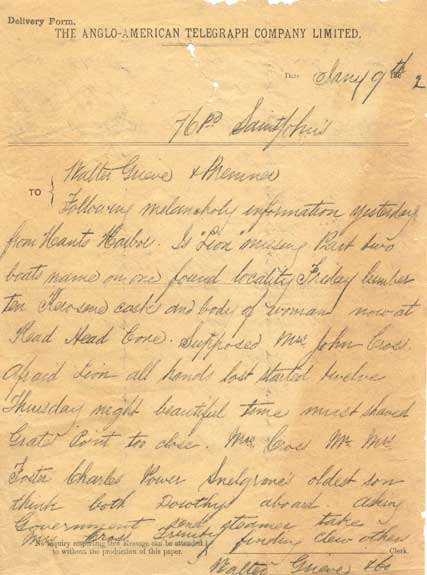 Delivery Form.
THE ANGLO-AMERICAN TELEGRAPH COMPANY LIMITED.
Date Jany 9th 188 2
76 Pd Saint John's
TO { Walter Grieve & Bremner
Following melancholy information yesterday
from Hants Harbor. Is "Lion" missing Part two
boats name on one found locality Friday lumber
ten Kerosene casks and body of woman now at
Head Cove. Supposed Mrs John Cross.
Afraid Lion all hands lost started twelve
Thursday night beautiful time must shaved
Grates Point too close. Mrs Cross Mr Mrs
Foster Charles Power Snelgrove's oldest son
think both Dorothys aboard asking
Government send steamer take
Mrs Cross Trinity finding clew other
No inquiry respecting this Message can be attended
to without the production of this paper.
Clerk.
Walter Grieve & Co